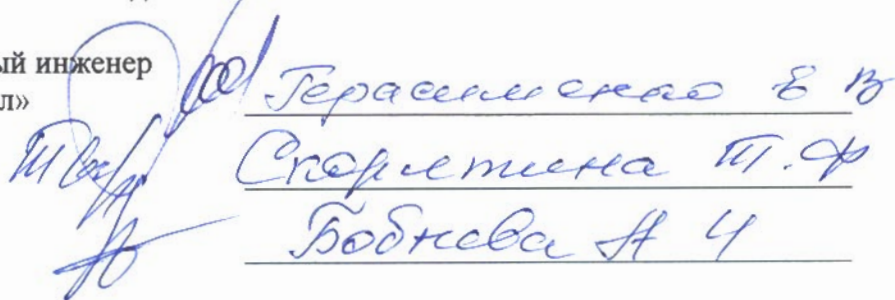 ый инженер
л»
Герасименко Е В
Скорятина Т.Ф
Бобнева Н Ч